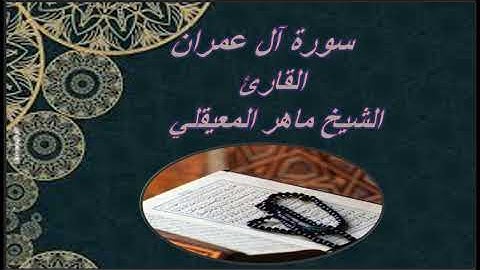 سورة آل عمران
القارئ
الشيخ ماهر المعيقلي